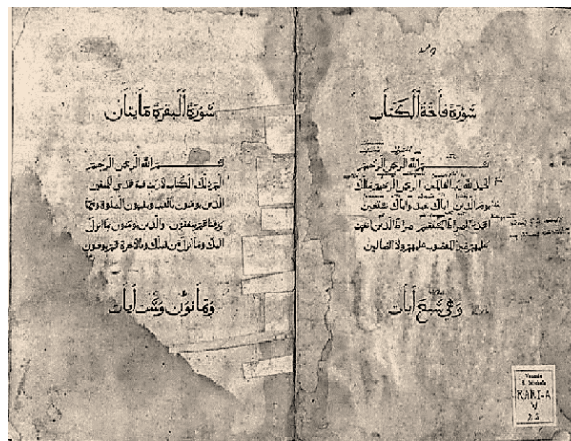 سورة فاتحة الكتاب
بسم الله الرحمن الرحيم
الحمد لله رب العالمين الرحمن الرحيم مالك
يوم الدين اياك نعبد واياك نستعين
اهدنا الصراط المستقيم صراط الذين انعمت
عليهم غير المغضوب عليهم ولا الضالين
وهي سبع أيات
Venezia
S. Michele
RARI-A
V
22
سورة البقرة مايتان
بسم الله الرحمن الرحيم
الم ذلك الكتاب لا ريب فيه هدى للمتقين
الذين يومنون بالغيب ويقيمون الصلوة ومما
رزقناهم ينفقون والذين يومنون بما انزل
اليك وما انزل من قبلك وبالاخرة هم يوقنون
وثمانون وست أيات